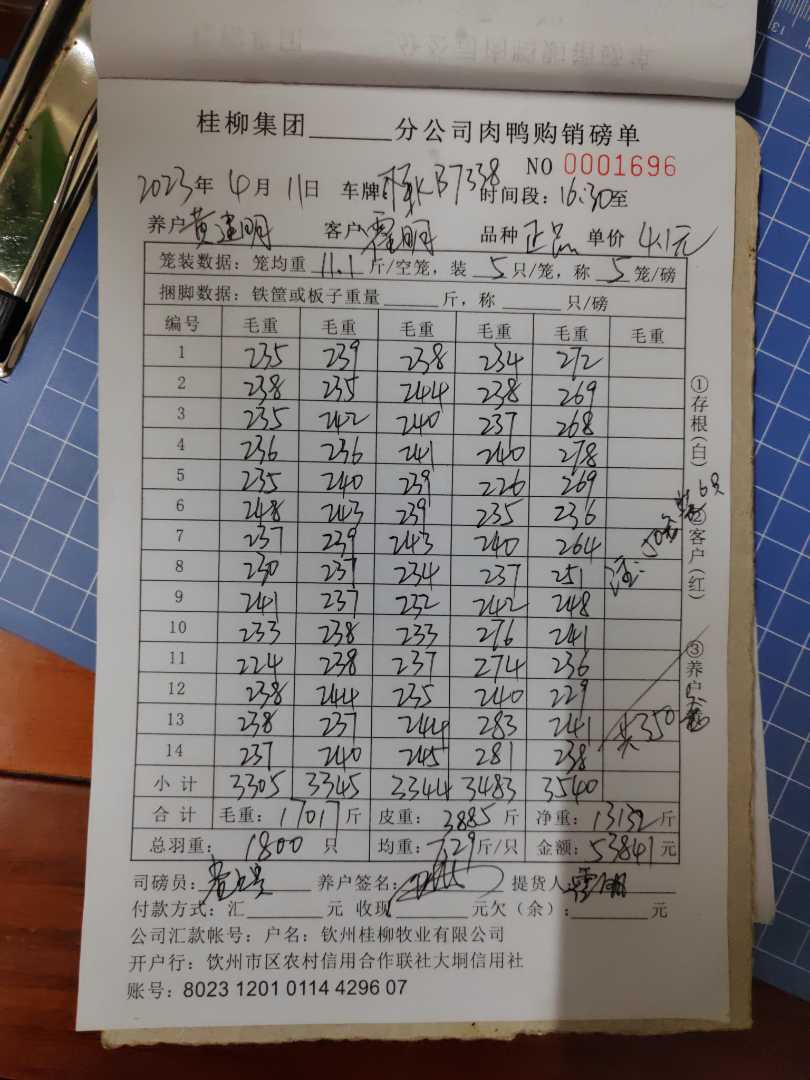 桂柳集团______分公司肉鸭购销磅单
NO 0001696
2023年 4月 11日 车牌 KB7338 时间段：16:30至
养户 黄建明 客户 霍明 品种 正品 单价 4.1元
笼装数据：笼均重 11.1 斤/空笼，装 5 只/笼，称 5 笼/磅
捆脚数据：铁筐或板子重量______斤，称______只/磅
编号 毛重 毛重 毛重 毛重 毛重 毛重
1 235 239 238 234 272
2 238 235 244 238 269
3 235 242 240 237 268
4 236 236 241 240 278
5 235 240 239 226 269
6 248 243 239 235 236
7 237 239 243 240 264
8 230 237 234 237 251
9 241 237 232 242 248
10 233 238 233 276 241
11 224 238 237 274 236
12 238 244 235 240 229
13 238 237 244 283 241
14 237 240 245 281 238
小计 3305 3345 3344 3483 3540
合计 毛重：17017斤 皮重：3885斤 净重：13132斤
总羽重：1800只 均重：7.29斤/只 金额：53841元
司磅员： 养户签名： 提货人：
付款方式：汇______元 收现______元欠（余）：______元
公司汇款帐号：户名：钦州桂柳牧业有限公司
开户行：钦州市区农村信用合作联社大垌信用社
账号：8023 1201 0114 4296 07
①存根(白)
②客户(红)
③养户
注：50笼装6只
共350